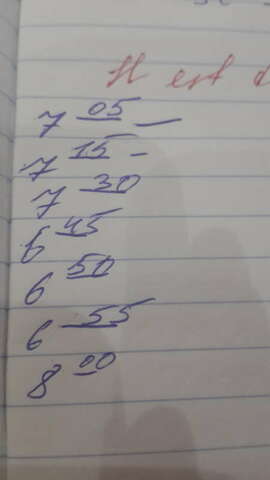 Il est
7 05 —
7 15 -
7 30
6 45
6 50
6 55
8 00